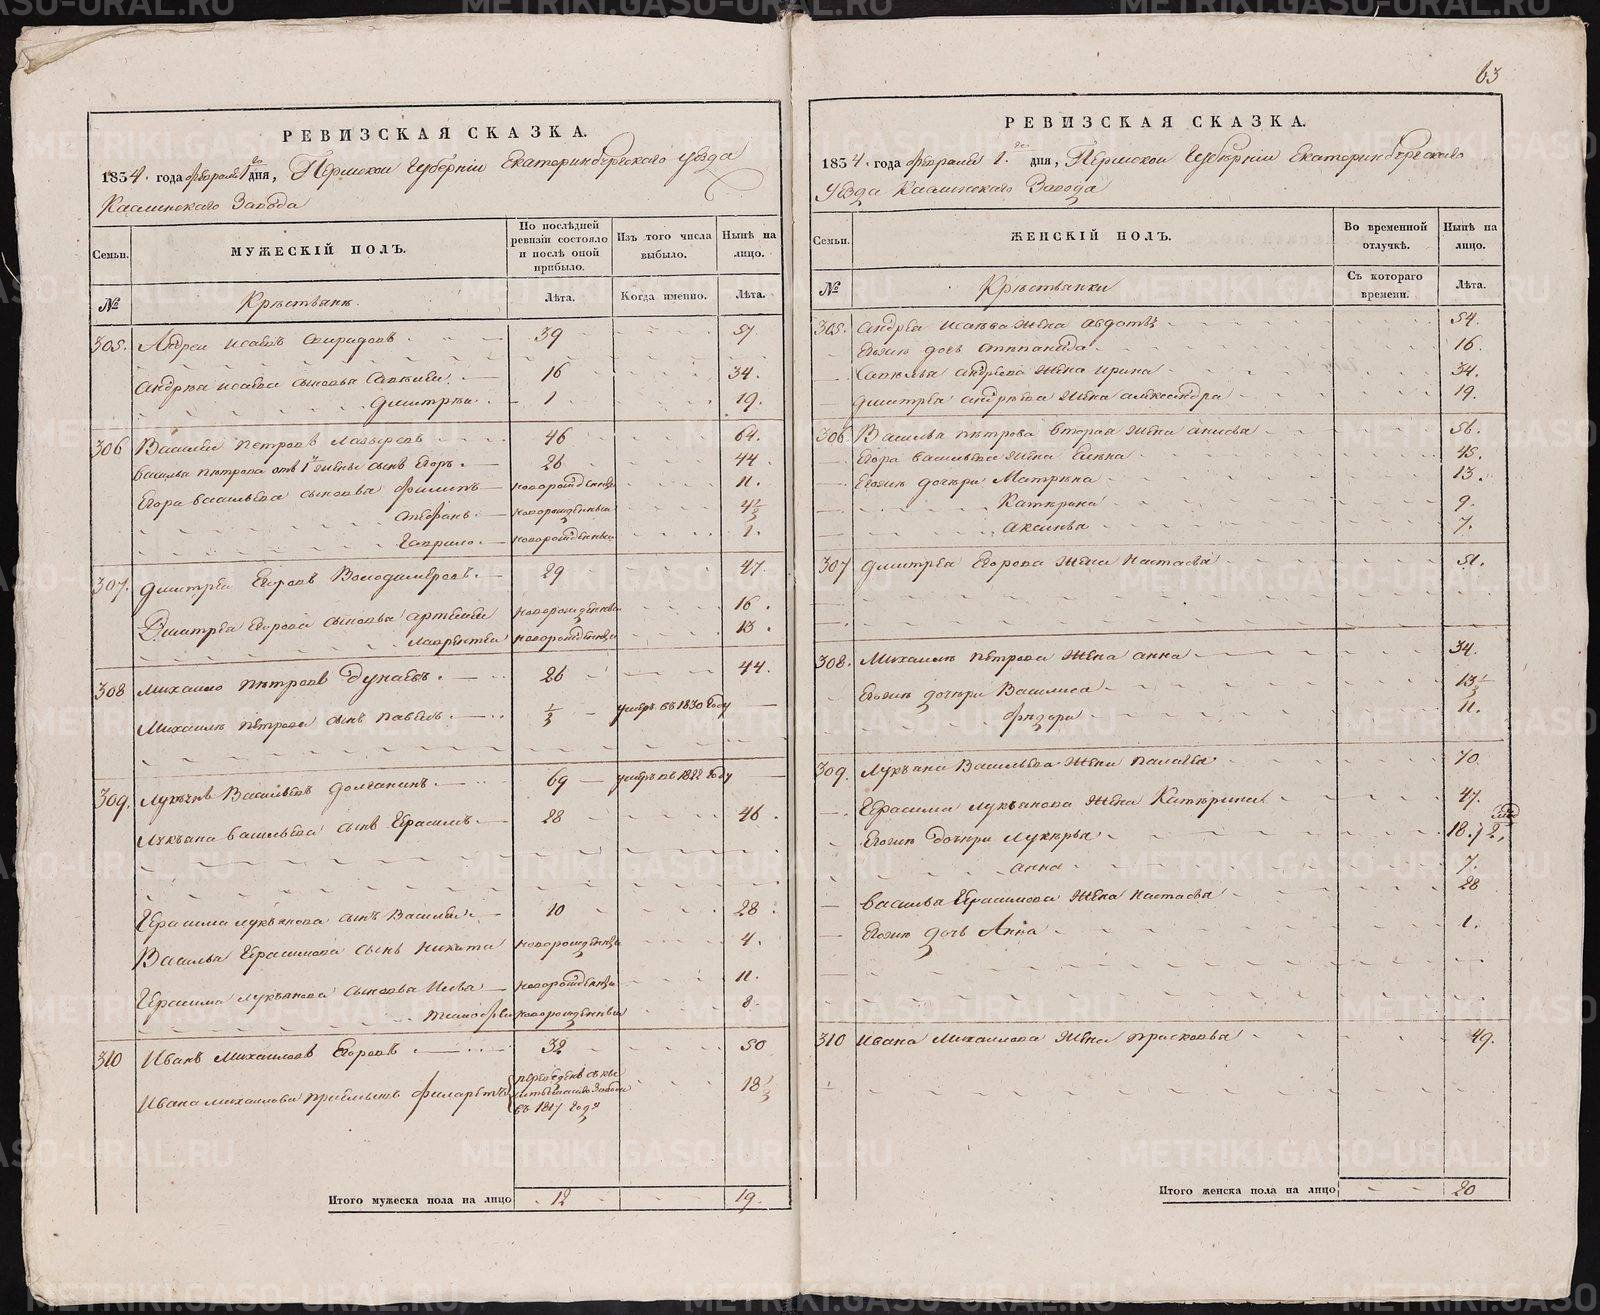 63
РЕВИЗСКАЯ СКАЗКА.
1834. года февраля 1го дня, Пермской Губернiи Екатеринбургского уезда
Каслинскаго Завода
Семьи. МУЖЕСКІЙ ПОЛЪ. По послѣдней ревизіи состояло и послѣ оной прибыло. Изъ того числа выбыло. Нынѣ на лицо.
№ Крестьяне. Лѣта. Когда именно. Лѣта.
305. Андреи Исаевъ Спиридоновъ 39 57
Андрѣя Исаева сыновья Савѣлеи 16 34.
Дмитрѣи 1 19.
306 Василеи Петровъ 46 64.
Василья Петрова отъ 1й жены сынъ Егоръ. 26 44.
Егора Васильева сыновья Филипъ новорожденныи 11.
Стефанъ новорожденныи 4½
Гаврило новорожденныи 1.
307. Дмитреи Егоровъ Володимеровъ. 29 47.
Дмитрея Егорова сыновья Артемеи новорожденныи 16.
Лаврентеи новорожденныи 13.
308 Михаило Петровъ Дунаевъ. 26 44.
Михаила Петрова сынъ Павелъ. ½ умеръ въ 1830 году
309. Лукъянъ Васильевъ Долганинъ. 69 умеръ въ 1822 году
Лукъяна Васильева сынъ Герасимъ. 28 46.
Герасима Лукъянова сынъ Василеи. 10 28.
Василья Герасимова сынъ Никита новорожденныи 4.
Герасима Лукъянова сыновья Илья новорожденныи 11.
Тимофеи новорожденныи 8.
310 Иванъ Михаиловъ Егоровъ 32 50
Ивана Михаилова приемышъ Филаретъ переведенъ съ Завода въ 1817 году 18½
Итого мужеска пола на лицо 12 19.
РЕВИЗСКАЯ СКАЗКА.
1834. года февраля 1го дня, Пермской Губернiи Екатеринбургскаго
Уезда Каслинскаго Завода
Семьи. ЖЕНСКІЙ ПОЛЪ. Во временной отлучкѣ. Нынѣ на лицо.
№ Крестьянки Съ котораго времени. Лѣта.
305. Андрея Исаева жена Авдотья 54.
Егоже дочь Степанида 16.
Савелья Андреева жена Ирина 34.
Дмитрея Андреева жена Александра 19.
306. Василья Петрова вторая жена Анисья 56.
Егора Васильева жена Елена 45.
Егоже дочери Матрена 13.
Катерина 9.
Аксинья 7.
307 Дмитрея Егорова жена Настасья 51.
308. Михаила Петрова жена Анна 34.
Егоже дочери Василиса 13½
Федора 11.
309. Лукъяна Васильева жена Палагея 70
Герасима Лукъянова жена Катерина 47.
Егоже дочери Лукерья 18.
Анна 7.
Василья Герасимова жена Настасья 28
Егоже дочь Анна 1.
310 Ивана Михаилова жена Прасковья 49.
Итого женска пола на лицо 20